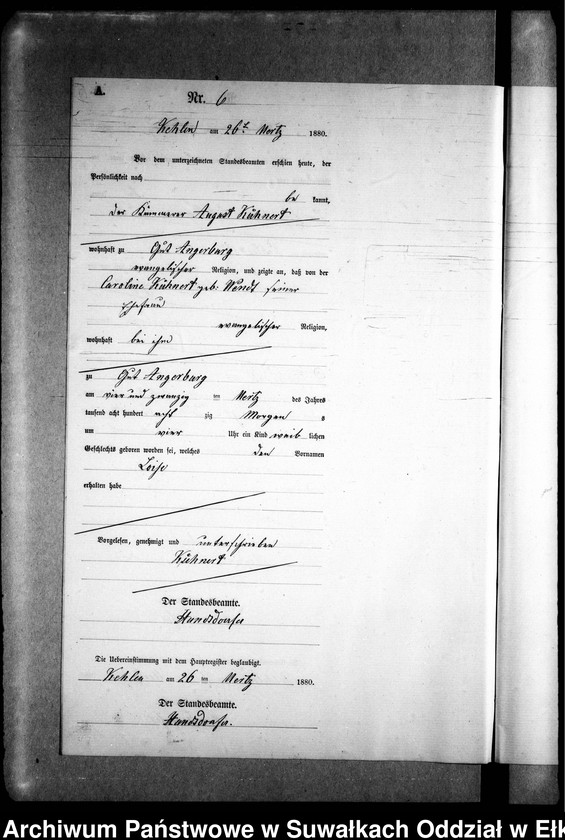 A.
Nr. 6
Kehlen am 26t März 1880.
Vor dem unterzeichneten Standesbeamten erschien heute, der
Persönlichkeit nach
be kannt,
der Kämmerer August Kühnert
wohnhaft zu Gut Angerburg
evangelischer Religion, und zeigte an, daß von der
Caroline Kühnert geb: Wendt seiner
Ehefrau
evangelischer Religion,
wohnhaft bei ihm
zu Gut Angerburg
am vier und zwanzig ten März des Jahres
tausend acht hundert acht zig Morgens
um vier Uhr ein Kind weib lichen
Geschlechts geboren worden sei, welches den Vornamen
erhalten habe
Vorgelesen, genehmigt und unterschrieben
Kühnert
Der Standesbeamte.
Die Uebereinstimmung mit dem Hauptregister beglaubigt.
Kehlen am 26 ten März 1880.
Der Standesbeamte.
Archiwum Państwowe w Suwałkach Oddział w Ełk